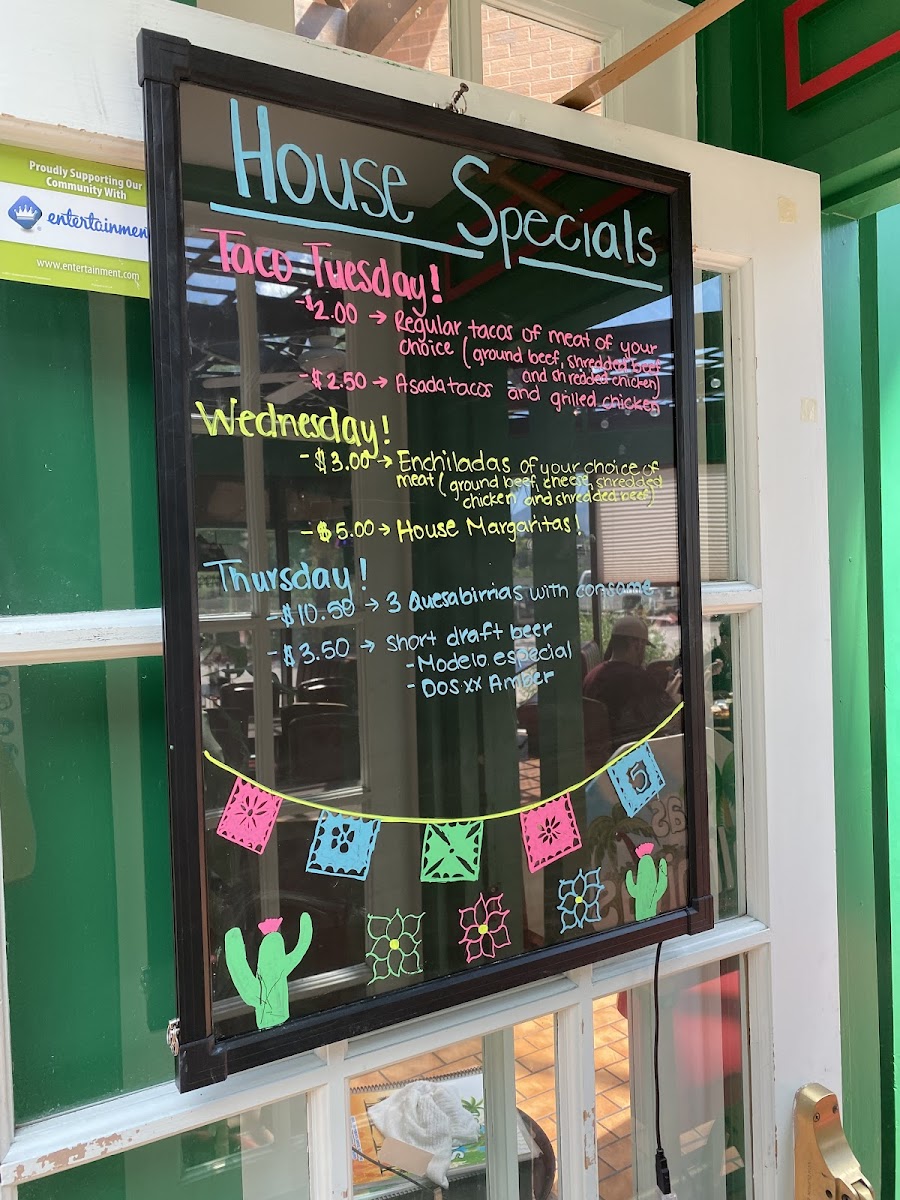 Proudly Supporting Our
Community With
entertainment
www.entertainment.com
House Specials
Taco Tuesday!
-$2.00 → Regular tacos of meat of your
choice (ground beef, shredded beef
and shredded chicken)
-$2.50 → Asada tacos and grilled chicken
Wednesday!
-$3.00 → Enchiladas of your choice of
meat (ground beef, cheese, shredded
chicken and shredded beef)
-$5.00 → House Margaritas!
Thursday!
-$10.50 → 3 Quesabirrias with consome
-$3.50 → short draft beer
-Modelo especial
-Dos xx Amber
5